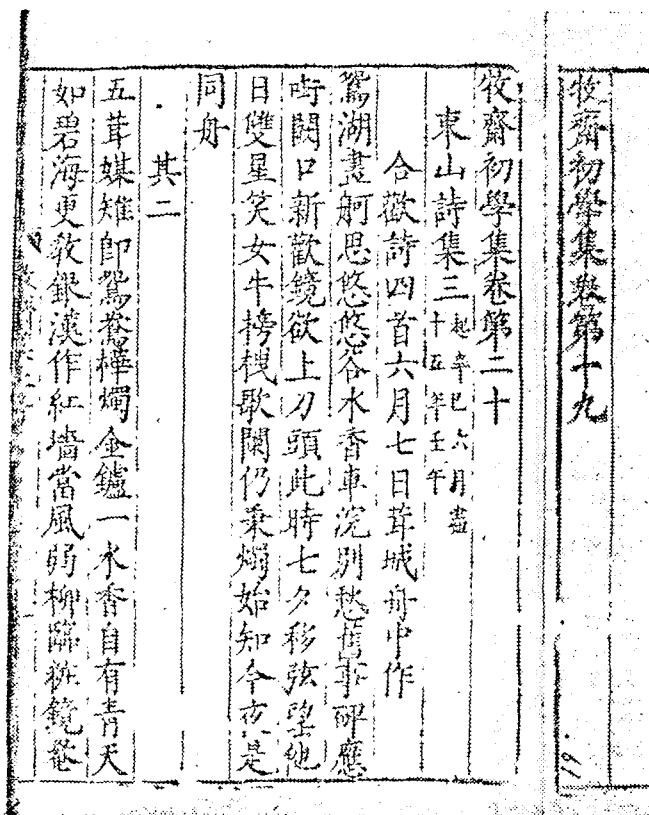 牧齋初學集卷第十九
牧齋初學集卷第二十
東山詩集三 起辛巳六月盡十五年壬午
合歡詩四首六月七日茸城舟中作
鴛湖畫舸思悠悠谷水香車浣別愁舊事碑應
啣闕口新歡鏡欲上刀頭此時七夕移弦望他
日雙星笑女牛榜枻歌闌仍秉燭始知今夜是
同舟
其二
五茸媒雉即鴛鴦樺燭金鑪一水香自有青天
如碧海更教銀漢作紅墻當風弱柳臨粧鏡罨
19.